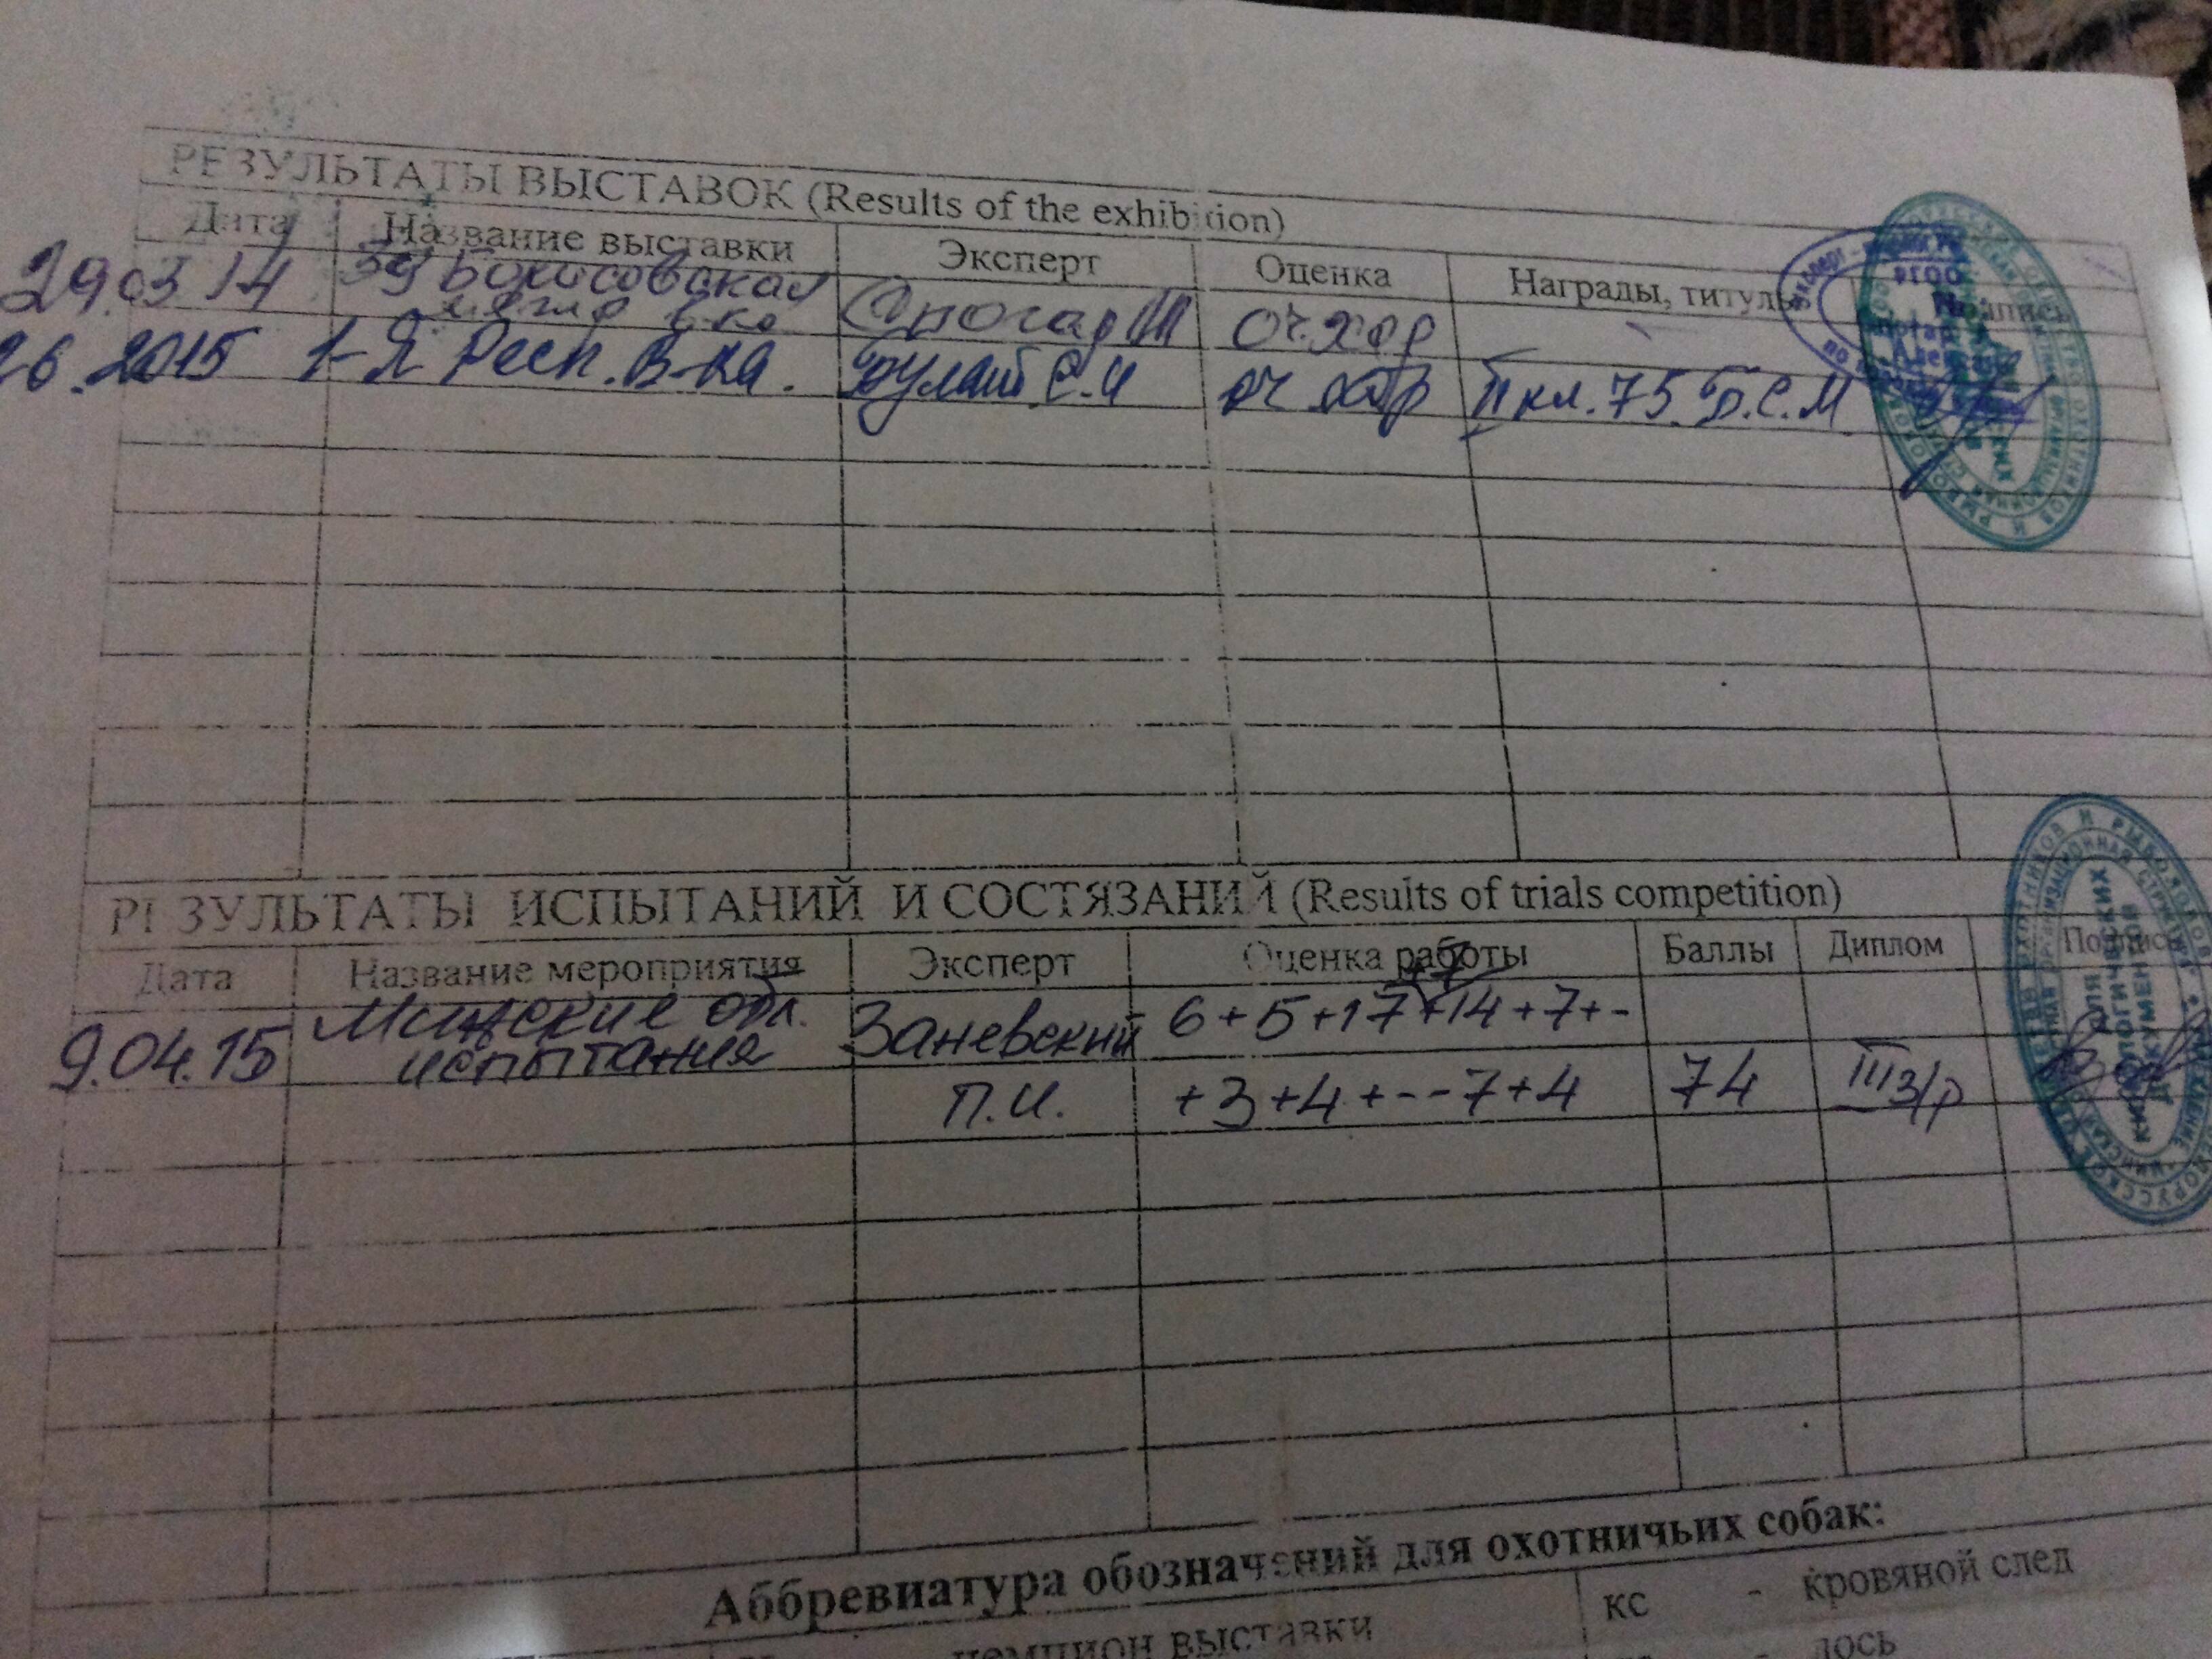 РЕЗУЛЬТАТЫ ВЫСТАВОК (Results of the exhibition)
Дата Название выставки Эксперт Оценка Награды, титулы Подпись
29.03 14 39 Борисовская оч. хор
26.2015 1-я Респ. В-ка. С.И оч хор II кл. 75 Б.С.М
РЕЗУЛЬТАТЫ ИСПЫТАНИЙ И СОСТЯЗАНИЙ (Results of trials competition)
Дата Название мероприятия Эксперт Оценка работы Баллы Диплом Подпись
9.04.15 Минские обл. Заневский 6+5+17+14+7+-
испытания
П.И. +3+4+--7+4 74 III з/р
Аббревиатура обозначений для охотничьих собак:
чемпион выставки кс - кровяной след
- лось